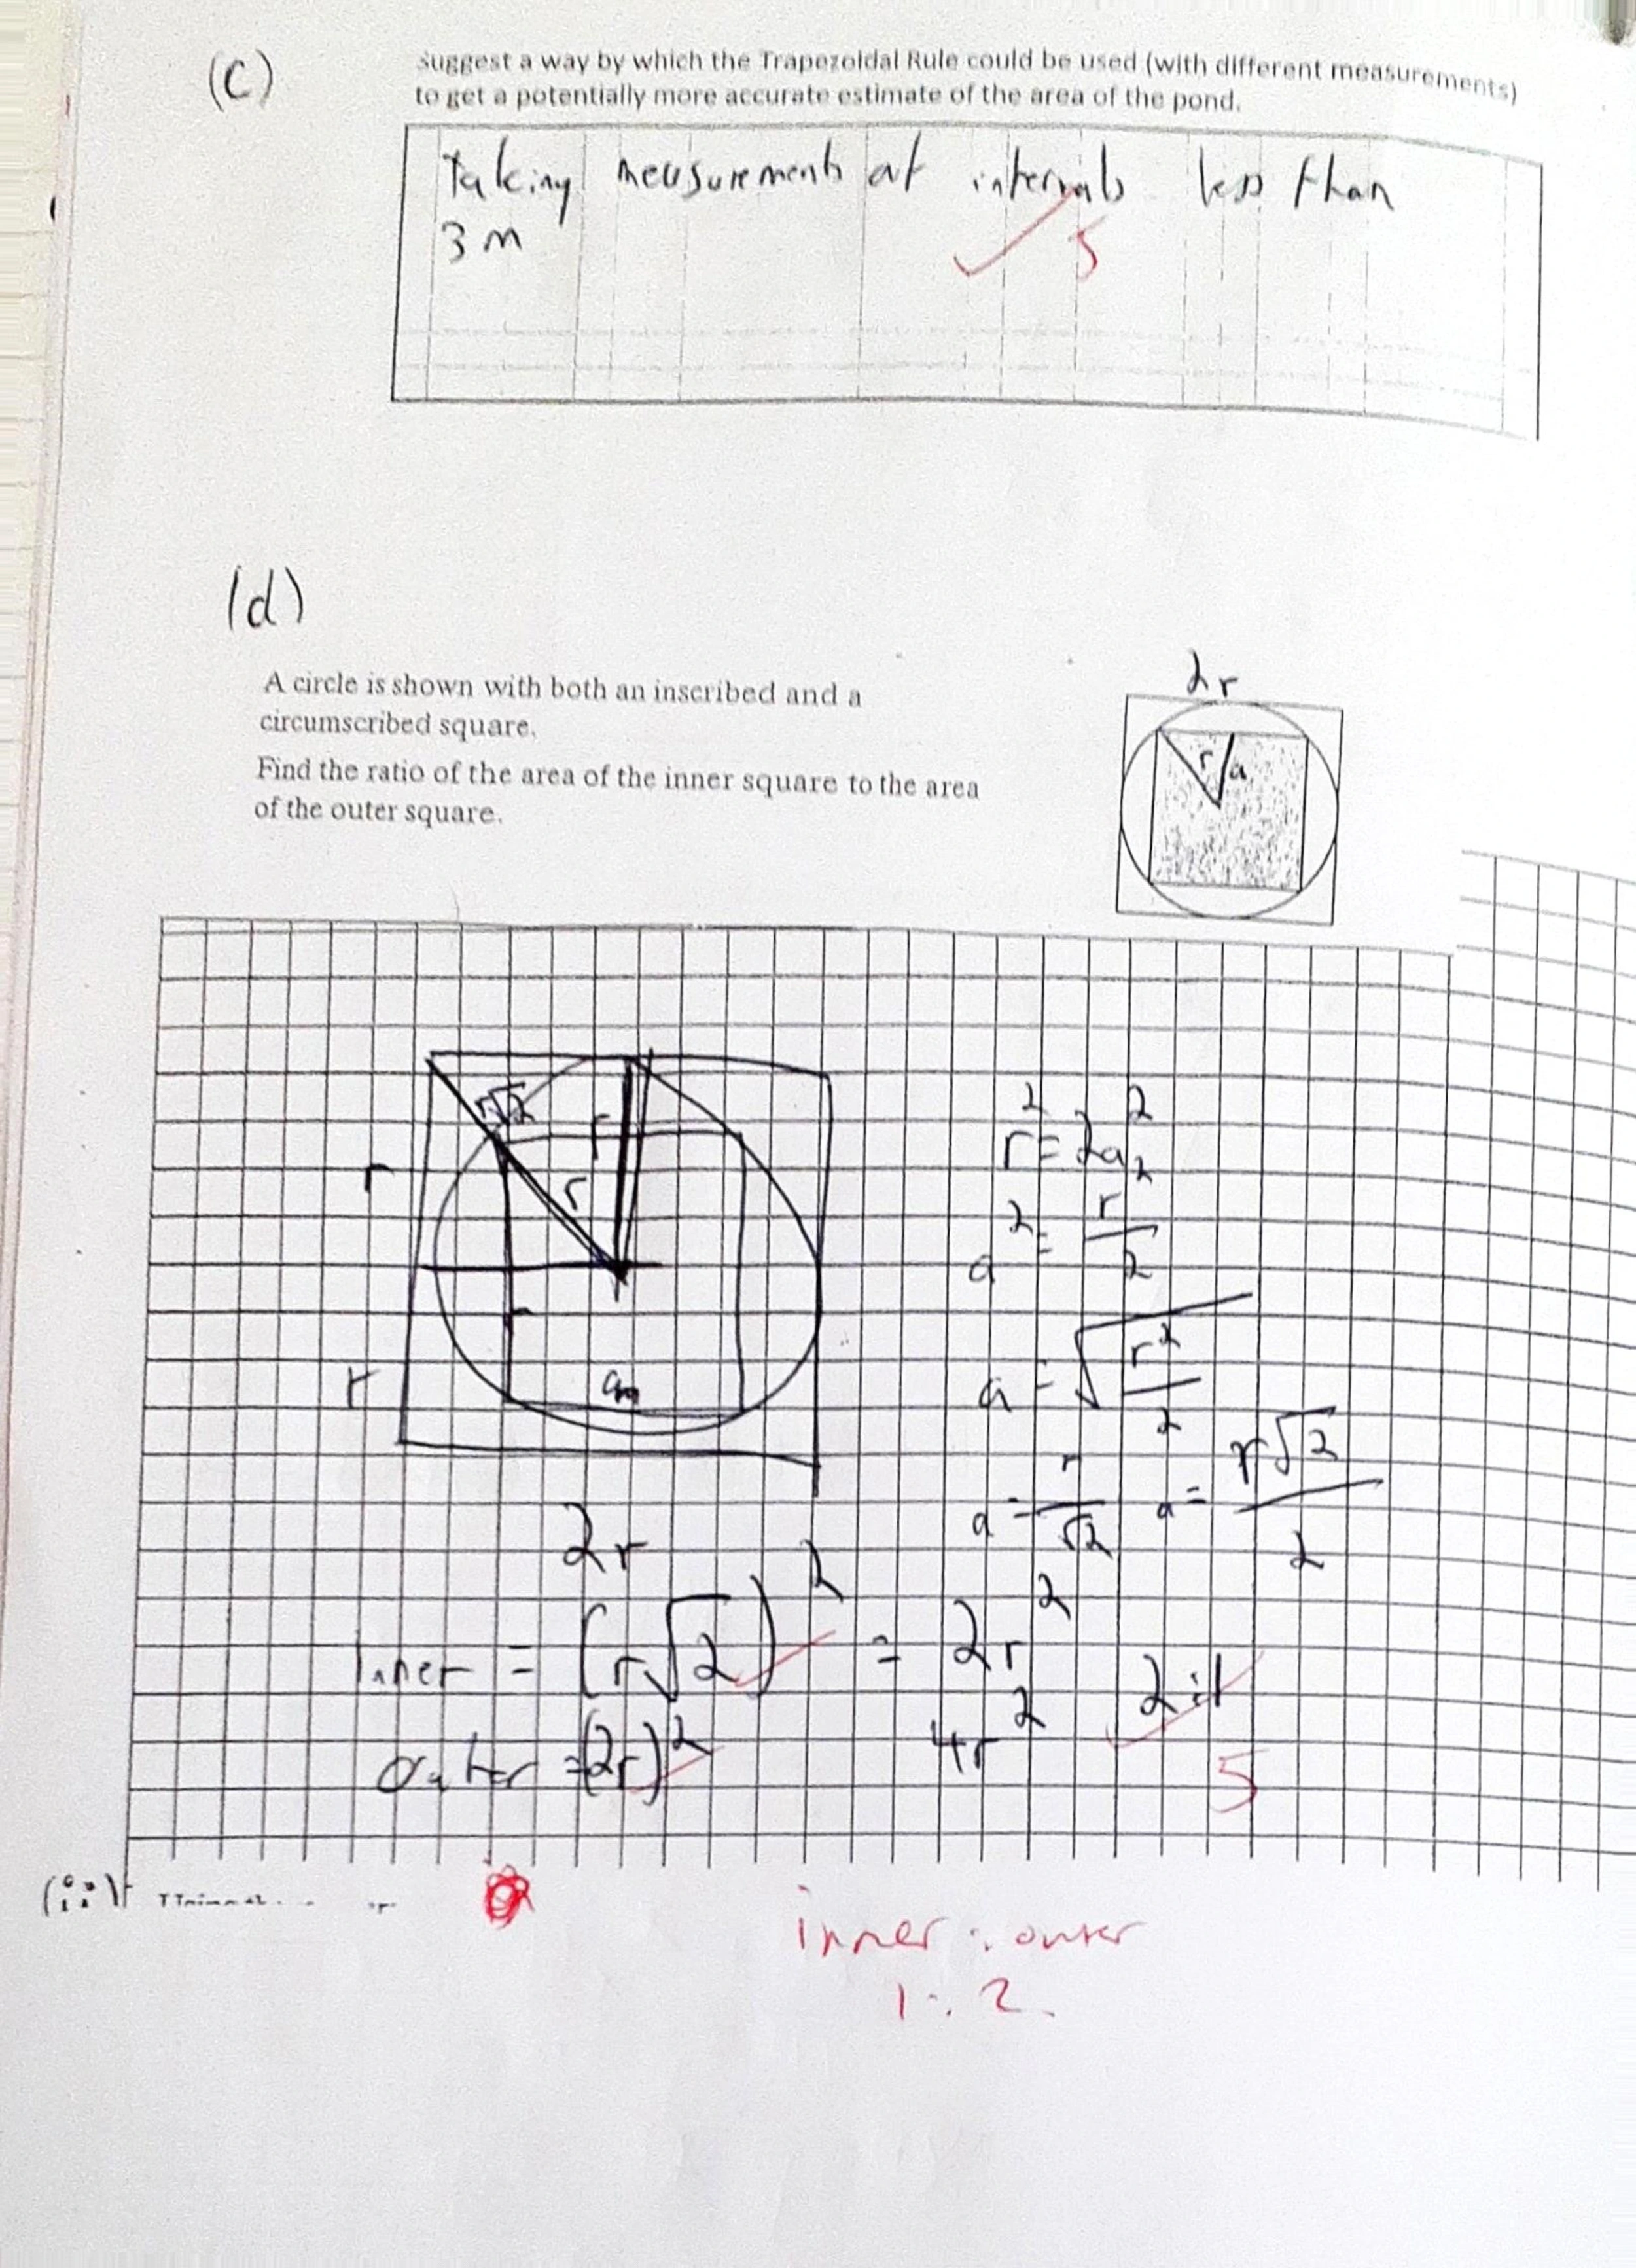 (c)
Suggest a way by which the Trapezoidal Rule could be used (with different measurements)
to get a potentially more accurate estimate of the area of the pond.
Taking measurements at intervals less than
3 m
5
(d)
A circle is shown with both an inscribed and a
circumscribed square.
Find the ratio of the area of the inner square to the area
of the outer square.
2r
r a
r√2
r
r
r
r
r² = 2a²
a² = r²/2
a = √(r²/2)
a = r/√2 a = r√2/2
2r
Inner = (r√2)² = 2r²
outer = (2r)² 4r² 2:1
5
(ii)
inner : outer
1 : 2